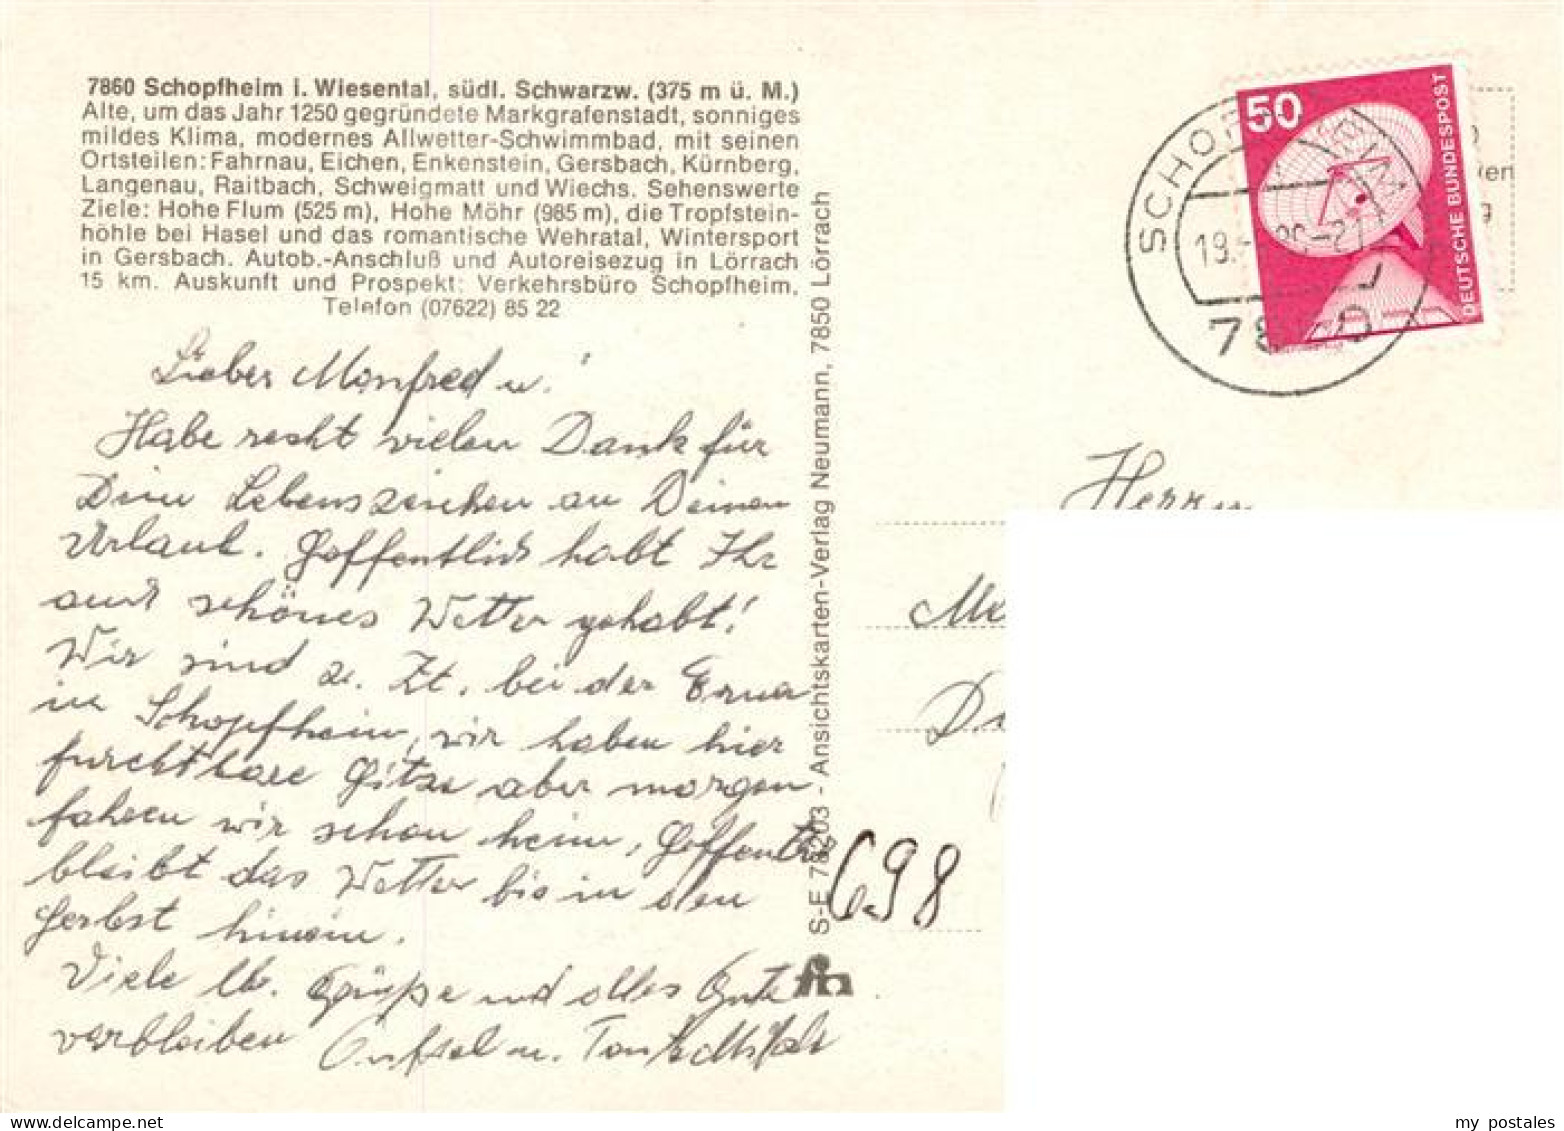 7860 Schopfheim i. Wiesental, südl. Schwarzw. (375 m ü. M.)
Alte, um das Jahr 1250 gegründete Markgrafenstadt, sonniges
mildes Klima, modernes Allwetter-Schwimmbad, mit seinen
Ortsteilen: Fahrnau, Eichen, Enkenstein, Gersbach, Kürnberg,
Langenau, Raitbach, Schweigmatt und Wiechs. Sehenswerte
Ziele: Hohe Flum (525 m), Hohe Möhr (985 m), die Tropfstein-
höhle bei Hasel und das romantische Wehratal, Wintersport
in Gersbach. Autob.-Anschluß und Autoreisezug in Lörrach
15 km. Auskunft und Prospekt: Verkehrsbüro Schopfheim,
Telefon (07622) 85 22
Lieber Manfred u.
Habe recht vielen Dank für
Dein Lebenszeichen an Deinen
Urlaub. Hoffentlich habt Ihr
auch schönes Wetter gehabt!
Wir sind z. Zt. bei der Erna
in Schopfheim, wir haben hier
furchtbare Hitze aber morgen
fahren wir schon heim, Hoffentlich
bleibt das Wetter bis in den
Herbst hinein.
Viele lb. Grüße und alles Gute
verbleiben Onkel u. Tante
S-E 78203 - Ansichtskarten-Verlag Neumann, 7850 Lörrach
50
DEUTSCHE BUNDESPOST
SCHOPFHEIM
19.
7860
Herrn
698
my postales